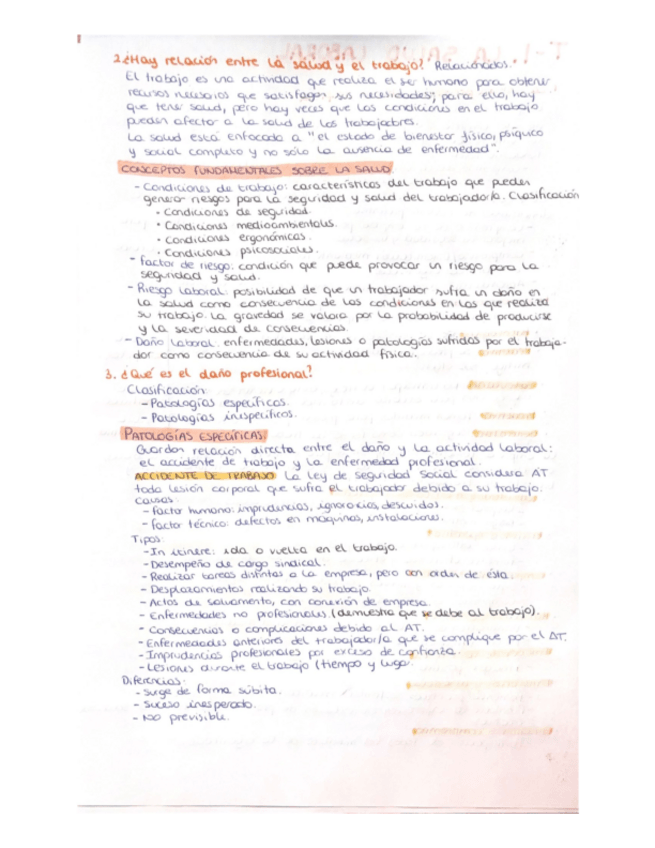 2. ¿Hay relación entre la salud y el trabajo? Relacionados.
El trabajo es una actividad que realiza el ser humano para obtener
recursos necesarios que satisfagan sus necesidades; para ello, hay
que tener salud, pero hay veces que las condiciones en el trabajo
pueden afectar a la salud de los trabajadores.
La salud está enfocado a "el estado de bienestar físico, psíquico
y social completo y no sólo la ausencia de enfermedad".
CONCEPTOS FUNDAMENTALES SOBRE LA SALUD.
- Condiciones de trabajo: características del trabajo que pueden
generar riesgos para la seguridad y salud del trabajador/a. Clasificación
· Condiciones de seguridad.
· Condiciones medioambientales.
· Condiciones ergonómicas.
· Condiciones psicosociales.
- Factor de riesgo: condición que puede provocar un riesgo para la
seguridad y salud.
- Riesgo laboral: posibilidad de que un trabajador sufra un daño en
la salud como consecuencia de las condiciones en las que realiza
su trabajo. La gravedad se valora por la probabilidad de producirse
y la severidad de consecuencias.
- Daño laboral: enfermedades, lesiones o patologías sufridas por el trabaja-
dor como consecuencia de su actividad física.
3. ¿Qué es el daño profesional?
Clasificación:
- Patologías específicas.
- Patologías inespecíficas.
PATOLOGÍAS ESPECÍFICAS.
Guardan relación directa entre el daño y la actividad laboral:
el accidente de trabajo y la enfermedad profesional.
ACCIDENTE DE TRABAJO La Ley de Seguridad Social considera AT
toda lesión corporal que sufra el trabajador debido a su trabajo.
Causas:
- factor humano: imprudencias, ignorancias, descuidos.
- factor técnico: defectos en máquinas, instalaciones.
Tipos:
- In itinere: ida o vuelta en el trabajo.
- Desempeño de cargo sindical.
- Realizar tareas distintas a la empresa, pero con orden de ésta.
- Desplazamientos realizando su trabajo.
- Actos de salvamento, con conexión de empresa.
- Enfermedades no profesionales. (demuestra que se debe al trabajo).
- Consecuencias o complicaciones debido al AT.
- Enfermedades anteriores del trabajador/a que se complique por el AT.
- Imprudencias profesionales por exceso de confianza.
- Lesiones durante el trabajo (tiempo y lugar.
Diferencias:
- Surge de forma súbita.
- Suceso inesperado.
- No previsible.